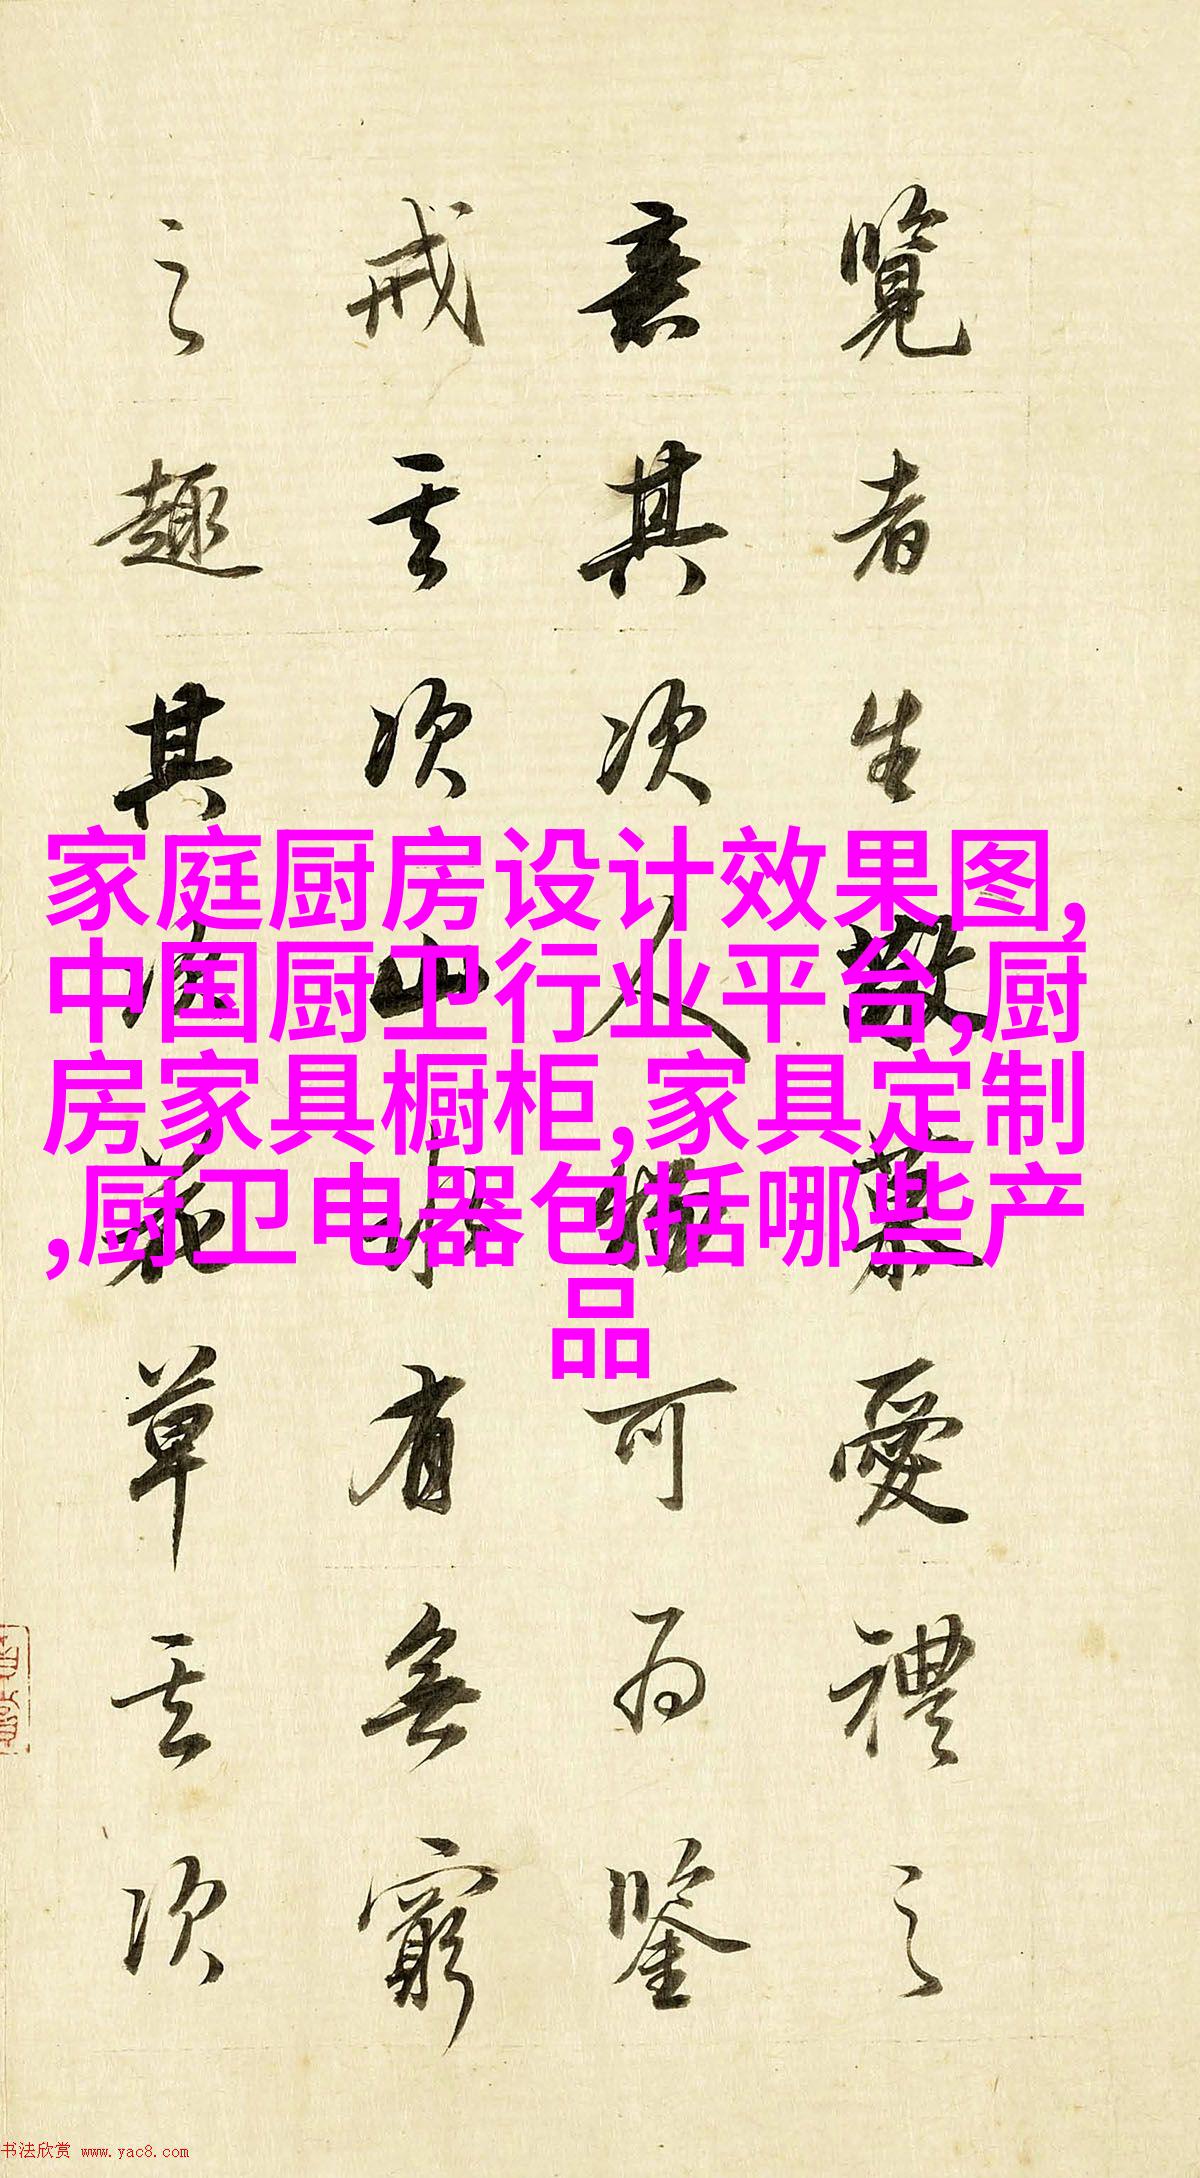 覽者生敬慕愛禮之
意其次人物可為鑒
戒其次山水有無窮
之趣其次花草其次
家庭厨房设计效果图,
中国厨卫行业平台,厨
房家具橱柜,家具定制
,厨卫电器包括哪些产
品
书法欣赏 www.yac8.com